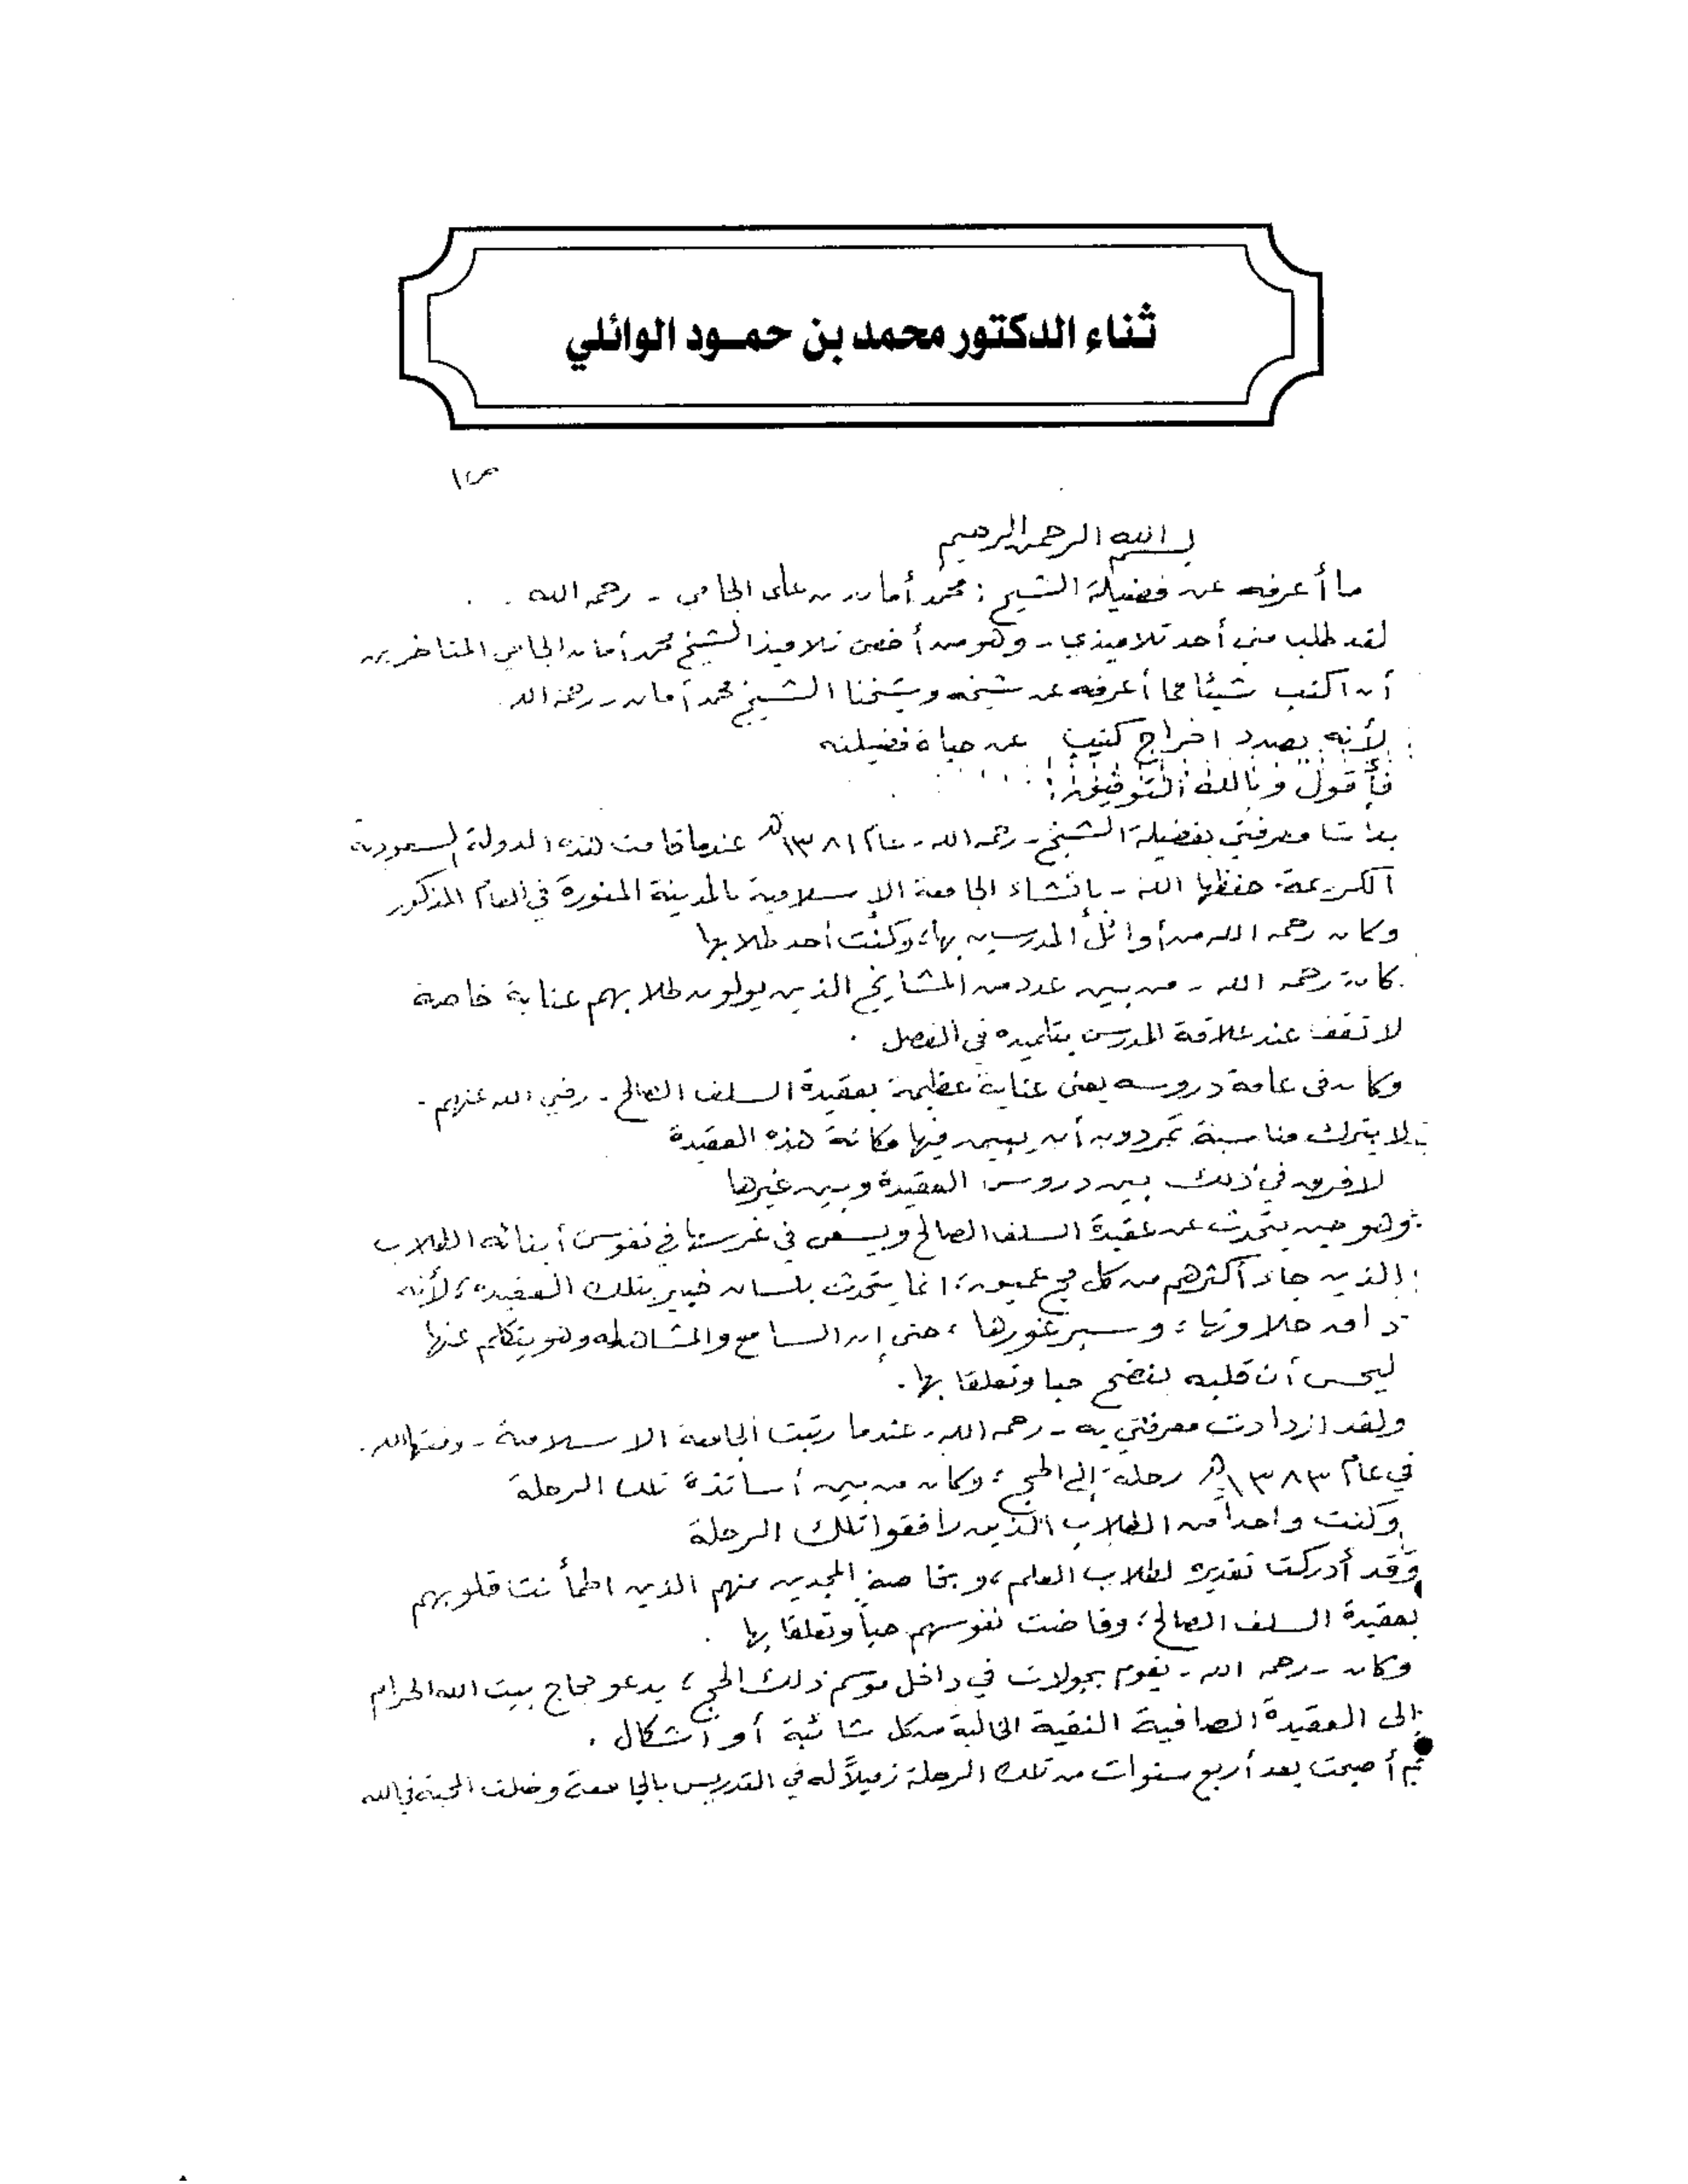 ثناء الدكتور محمد بن حمـود الوائلي
ص١
بسم الله الرحمن الرحيم
ما أعرفه عن فضيلة الشيخ : محمد أمان بن على الجامى - رحمه الله
لقد طلب منى أحد تلاميذي - وهو من أخص تلاميذ الشيخ محمد أمان الجامى المتأخرين
أن اكتب شيئا مما أعرفه عن شيخه وشيخنا الشيخ محمد أمان - رحمه الله
لأنه بصدد اخراج كتيب عن حياة فضيلته
فأقول وبالله التوفيق :
بدأت معرفتي بفضيلة الشيخ - رحمه الله - عام ١٣٨١هـ عندما قامت هذه الدولة السعودية
الكريمة - حفظها الله - بانشاء الجامعة الاسلامية بالمدينة المنورة في العام المذكور
وكان رحمه الله من أوائل المدرسين بها، وكنت أحد طلابها
كان رحمه الله - من بين عدد من المشايخ الذين يولون طلابهم عناية خاصة
لا تقف عند علاقة المدرس بتلميذه في الفصل .
وكان فى عامة دروسه يعنى عناية عظيمة بعقيدة السلف الصالح - رضي الله عنهم -
لا يترك مناسبة تمر دون أن يبين فيها مكانة هذه العقيدة
لا فرق في ذلك بين دروس العقيدة وبين غيرها
وهو حين يتحدث عن عقيدة السلف الصالح ويسعى في غرسها في نفوس أبنائه الطلاب
الذين جاء أكثرهم من كل فج عميق، انما يتحدث بلسان خبير بتلك العقيدة، لأنه
ذاق حلاوتها، وسبر غورها، حتى إن السامع والمشاهد له وهو يتكلم عنها
ليحس أن قلبه ينضح حبا وتعلقا بها .
ولقد ازدادت معرفتي به - رحمه الله - عندما رتبت الجامعة الاسلامية - وفقها الله -
في عام ١٣٨٣هـ رحلة إلى الحج، وكان من بين أساتذة تلك الرحلة
وكنت واحداً من الطلاب الذين رافقوا تلك الرحلة
وقد أدركت تقديره لطلاب العلم، وبخاصة المجدين منهم الذين اطمأنت قلوبهم
بعقيدة السلف الصالح، وفاضت نفوسهم حباً وتعلقا بها .
وكان - رحمه الله - يقوم بجولات في داخل موسم ذلك الحج، يدعو حجاج بيت الله الحرام
إلى العقيدة الصافية النقية الخالية من كل شائبة أو اشكال .
ثم أصبحت بعد أربع سنوات من تلك الرحلة زميلاً له في التدريس بالجامعة وظلت المحبة في الله